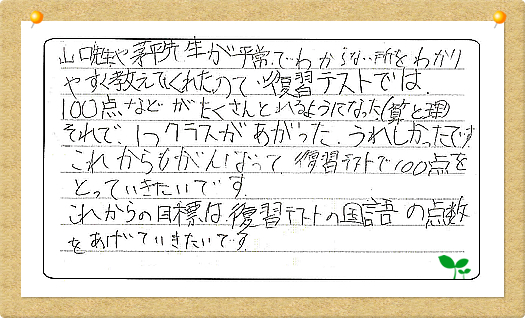 山口先生や茅野先生が平常でわからない所をわかり
やすく教えてくれたので、復習テストでは、
100点などがたくさんとれるようになった(算と理)
それで、1つクラスがあがった。うれしかったです
これからもがんばって復習テストで100点を
とっていきたいです
これからの目標は復習テストの国語の点数
をあげていきたいです